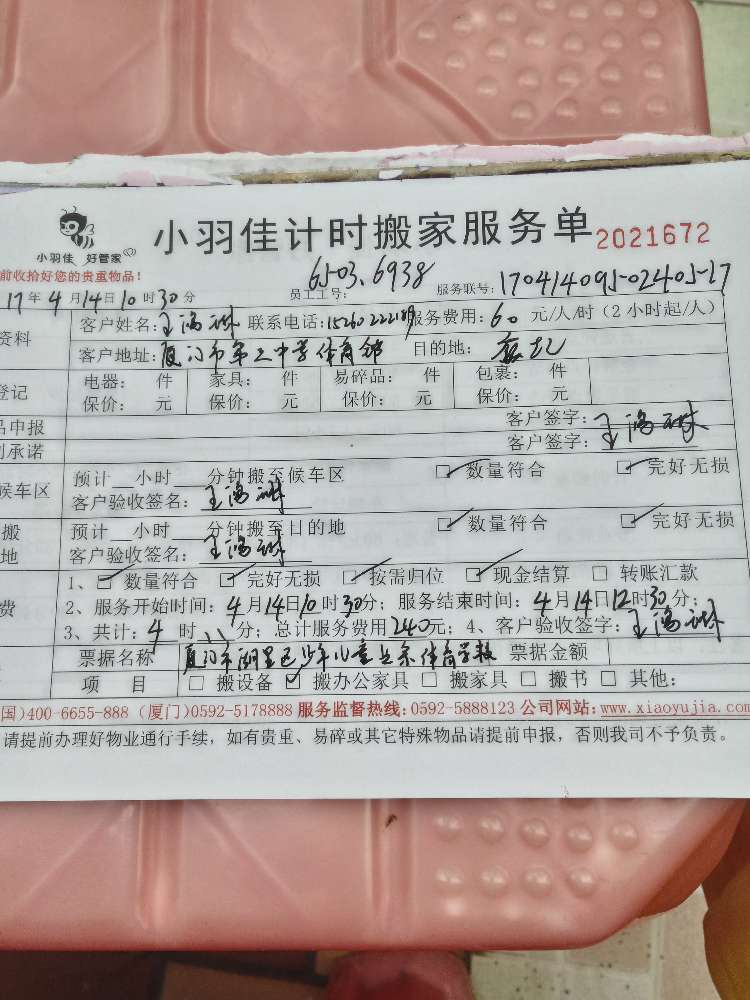 小羽佳计时搬家服务单 2021672
小羽佳 好管家
前收拾好您的贵重物品！
17年4月14日10时30分 员工工号：6503、6938 服务联号：170414095-02405-17
资料 客户姓名：王鸿 联系电话：15260222189 服务费用：60元/人/时（2小时起/人）
客户地址：厦门市第三中学体育馆 目的地：
登记 电器： 件 家具： 件 易碎品： 件 包裹： 件
保价： 元 保价： 元 保价： 元 保价： 元
品申报 客户签字：王鸿
别承诺 客户签字：王鸿
候车区 预计__小时__分钟搬至候车区 □数量符合 □完好无损
客户验收签名：王鸿
搬 预计__小时__分钟搬至目的地 □数量符合 □完好无损
地 客户验收签名：王鸿
费 1、□数量符合 □完好无损 □按需归位 □现金结算 □转账汇款
2、服务开始时间：4月14日10时30分；服务结束时间：4月14日12时30分；
3、共计：4时 分；总计服务费用240元；4、客户验收签字：王鸿
票据名称 厦门市湖里区少年儿童业余体育学校 票据金额
项 目 □搬设备 □搬办公家具 □搬家具 □搬书 □其他：
国)400-6655-888 (厦门)0592-5178888 服务监督热线：0592-5888123 公司网站：www.xiaoyujia.com
请提前办理好物业通行手续，如有贵重、易碎或其它特殊物品请提前申报，否则我司不予负责。